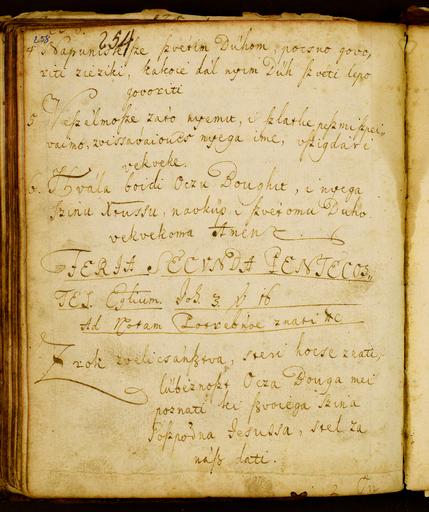 254
4 Napunisse ße ßvetim Duhom, pocsno govo,
riti zieziki, kakoie dal nyim Duh ßveti lepo
govoriti
5 Veßelmoße zato nyemu, i ßlatke peßmi ßpei,
vaimo, zvissavaioucs nyega ime, vßigdar i
vekveke.
6. Hvala boidi Oczu Bougu, i nyega
Szinu Xtussu, navkup i ßvetomu Duho
vekvekoma Amen
FERIA SECVNDA PENTECOS,
TES. Eglium. Joh. 3. ℣ 16
Ad Notam Potrebnoe znati
Zrok zvelicsánßtva, steri hocse znati,
lübéznoßt Ocza Bouga mei
poznati ki ßvoiega ßzina
Goßpodna Iesussa, stel za
nasz dati.